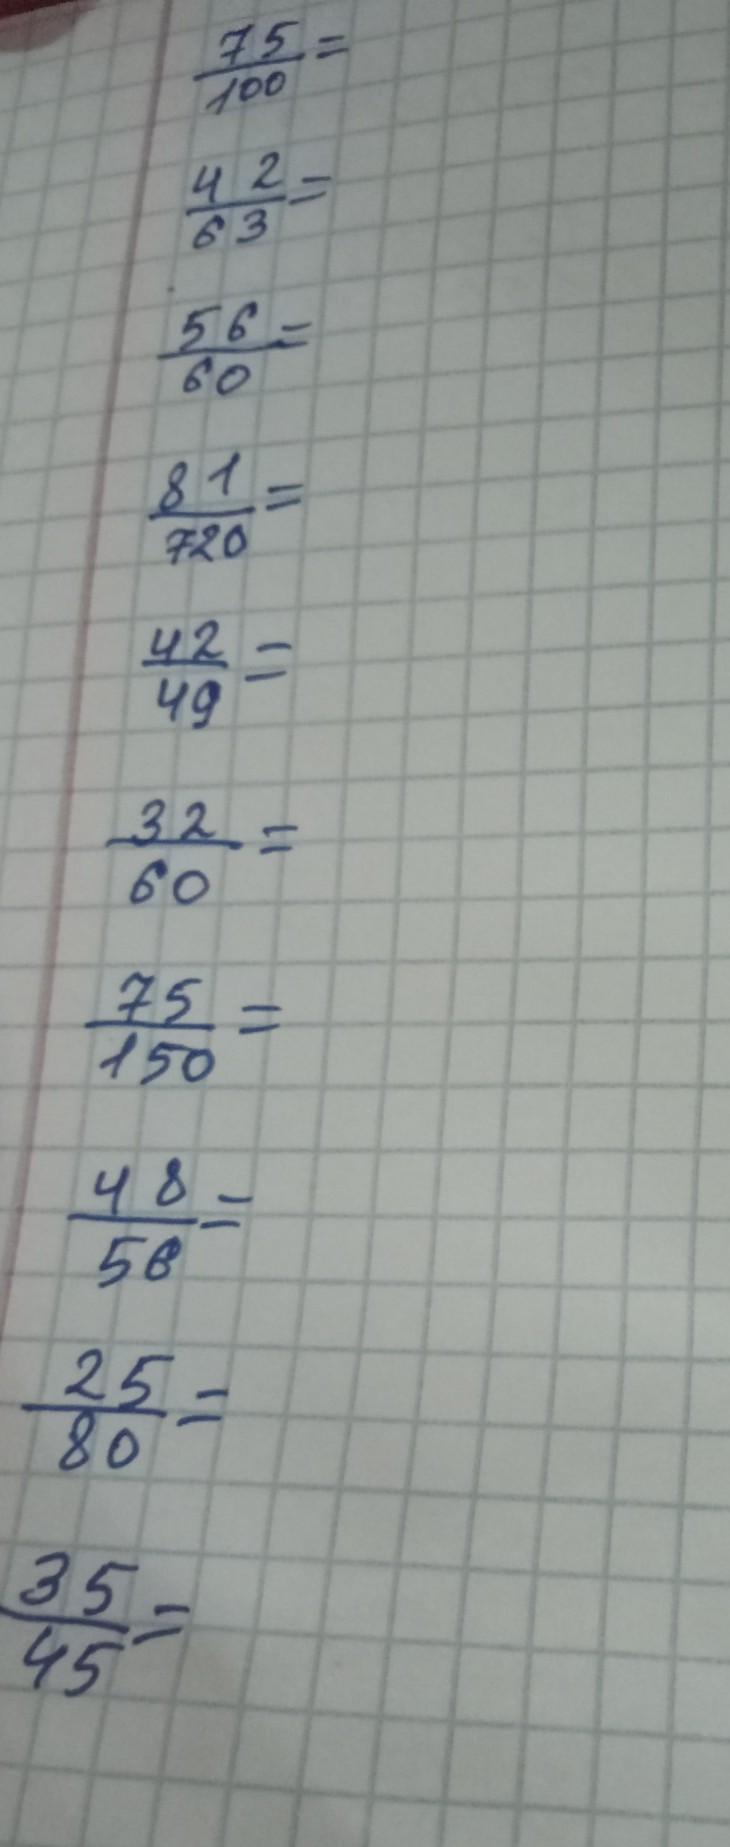 75/100 =
42/63 =
56/60 =
81/720 =
42/49 =
32/60 =
75/150 =
48/56 =
25/80 =
35/45 =